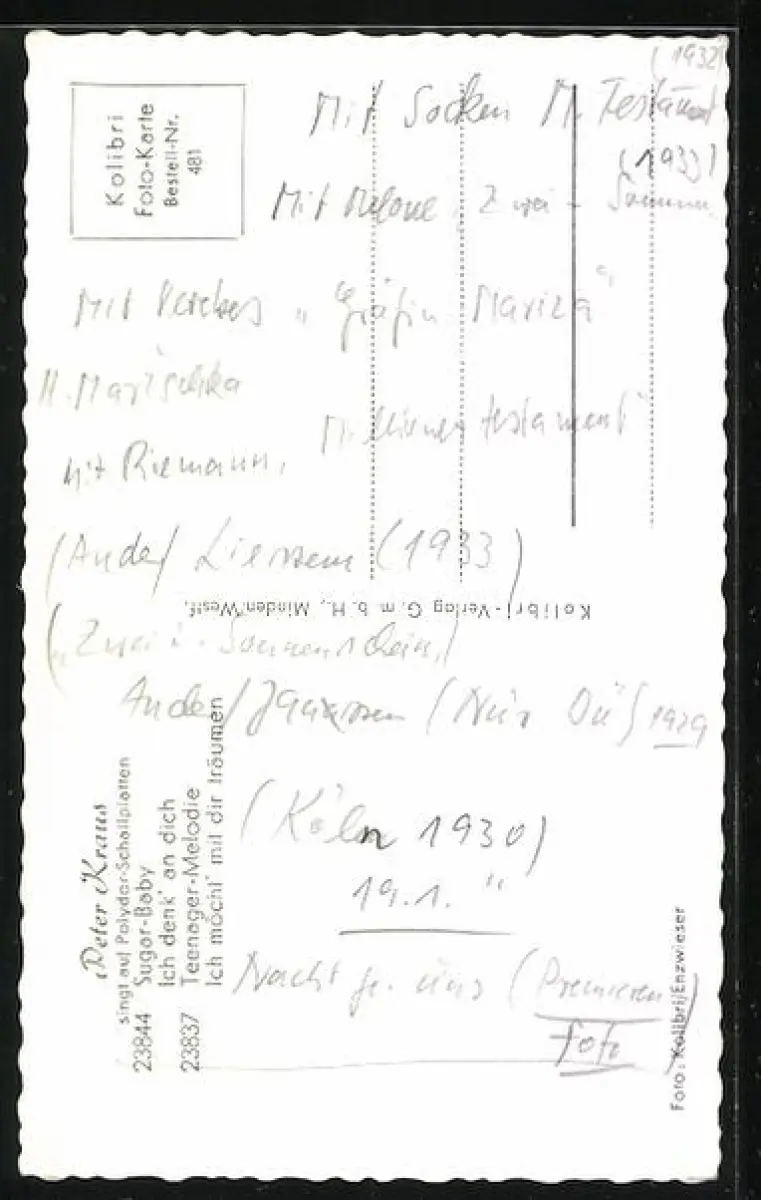 (1932)
Mit Socken M. Testament
(1933)
Mit Melone Zwei - Sonnen
Mit Verebes „Gräfin Mariza"
H. Marischka
Millionentestament"
mit Riemann,
(Ander) (1933)
(„Zwei i. Sonnenschein)
Ander / Janssen (Nur Du) 1929
(Köln 1930)
19.1. "
Nacht gh. uns (Premieren
foto
Kolibri
Foto-Karte
Bestell-Nr.
481
Kolibri-Verlag G.m.b.H., Minden/Westf.
Peter Kraus
singt auf Polydor-Schallplatten
23844 Sugar-Baby
Ich denk' an dich
23837 Teenager-Melodie
Ich möcht' mit dir träumen
Foto: Kolibri/Enzwieser